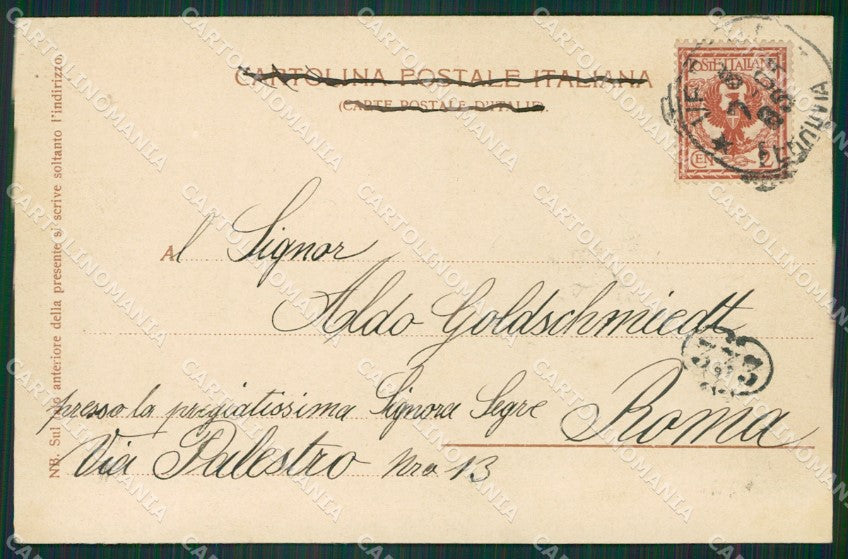 CARTOLINA POSTALE ITALIANA
(CARTE POSTALE D'ITALIE)
POSTE ITALIANE
CENT. 2
Al Signor
Aldo Goldschmiedt
presso la pregiatissima Signora Segre
Roma
Via Palestro Nro 13
NB. Sul lato anteriore della presente si scrive soltanto l'indirizzo.
CARTOLINOMANIA